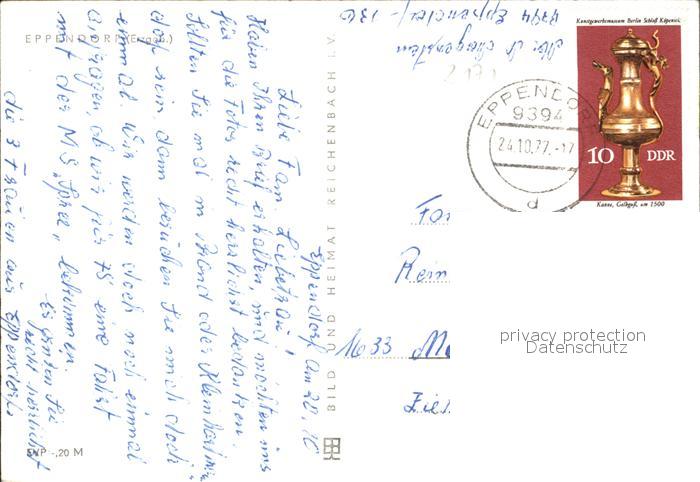 EPPENDORF (Erzgeb.)
Eppendorf am 20.10
Liebe Fam. Liebetrau!
Haben Ihren Brief erhalten, und möchten uns
für die Fotos recht herzlichst bedanken.
Sollten Sie mal in Brand oder Kleinhartm.
dorf sein dann besuchen Sie uns doch
einmal. Wir werden doch noch einmal
anfragen, ob wir für 78 eine Fahrt
mit der MS "Spree" bekommen.
Es grüßen Sie
recht herzlichst
die 3 Frauen aus Eppendorf
EVP -,20 M
BILD UND HEIMAT REICHENBACH I. V.
9394 Eppendorf
Kunstgewerbemuseum Berlin Schloß Köpenick
10 DDR
Kanne, Gelbguß, um 1500
EPPENDORF
9394
24.10.77.-17
d
Fa
Rein
1633 M
Zie
privacy protection
Datenschutz